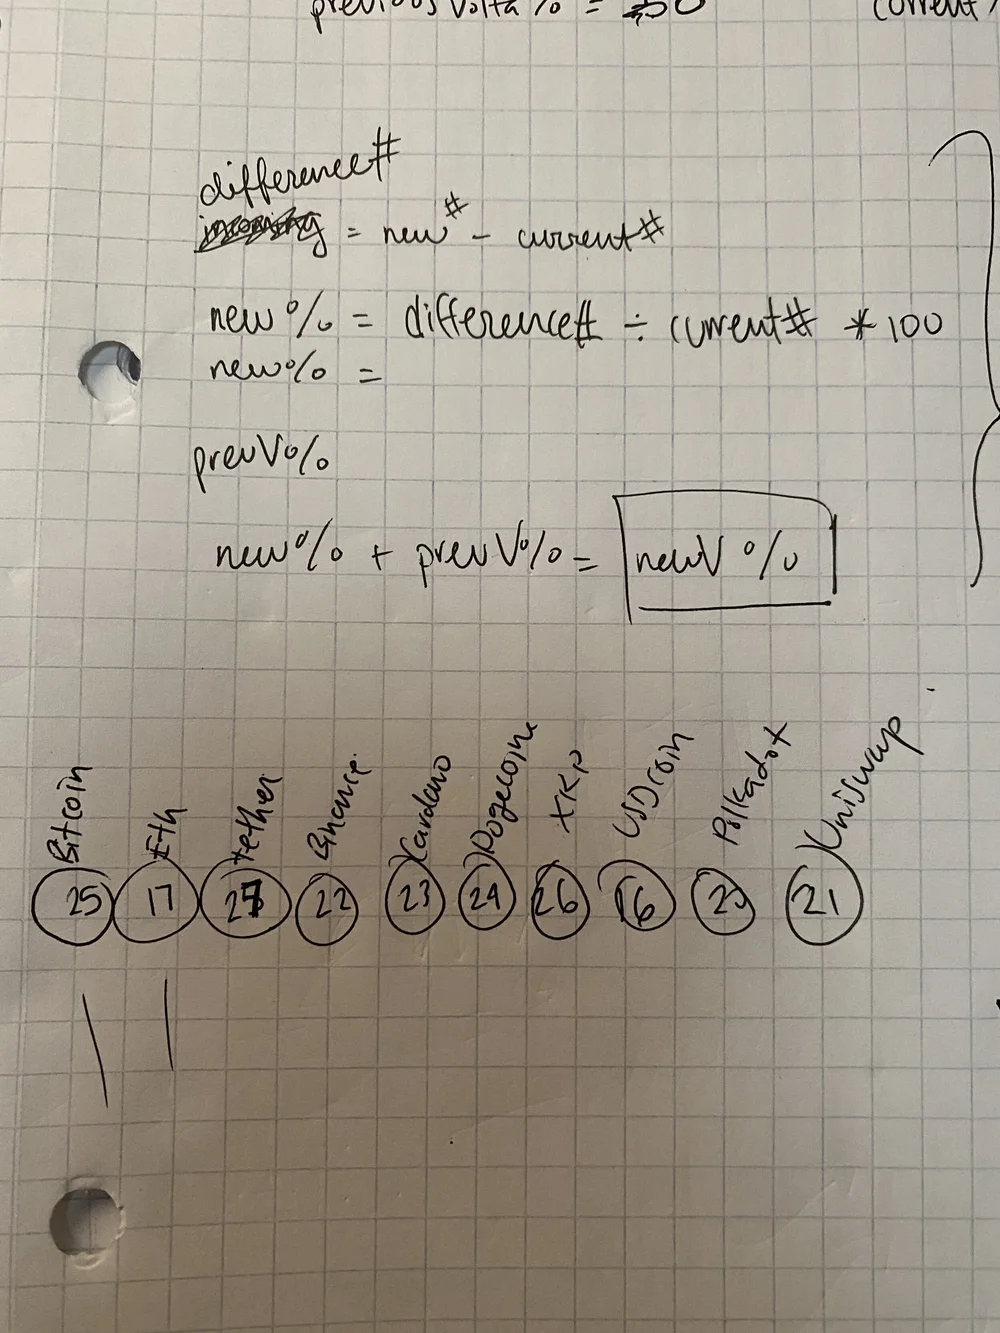 previous Volta % = 50 current
difference#
= new# - current#
new % = difference# ÷ current# * 100
new% =
prevV%
new% + prevV% = newV %
Bitcoin Eth tether Binance Cardano Dogecoin XRP USDcoin Polkadot Uniswap
25 17 22 23 24 26 16 21